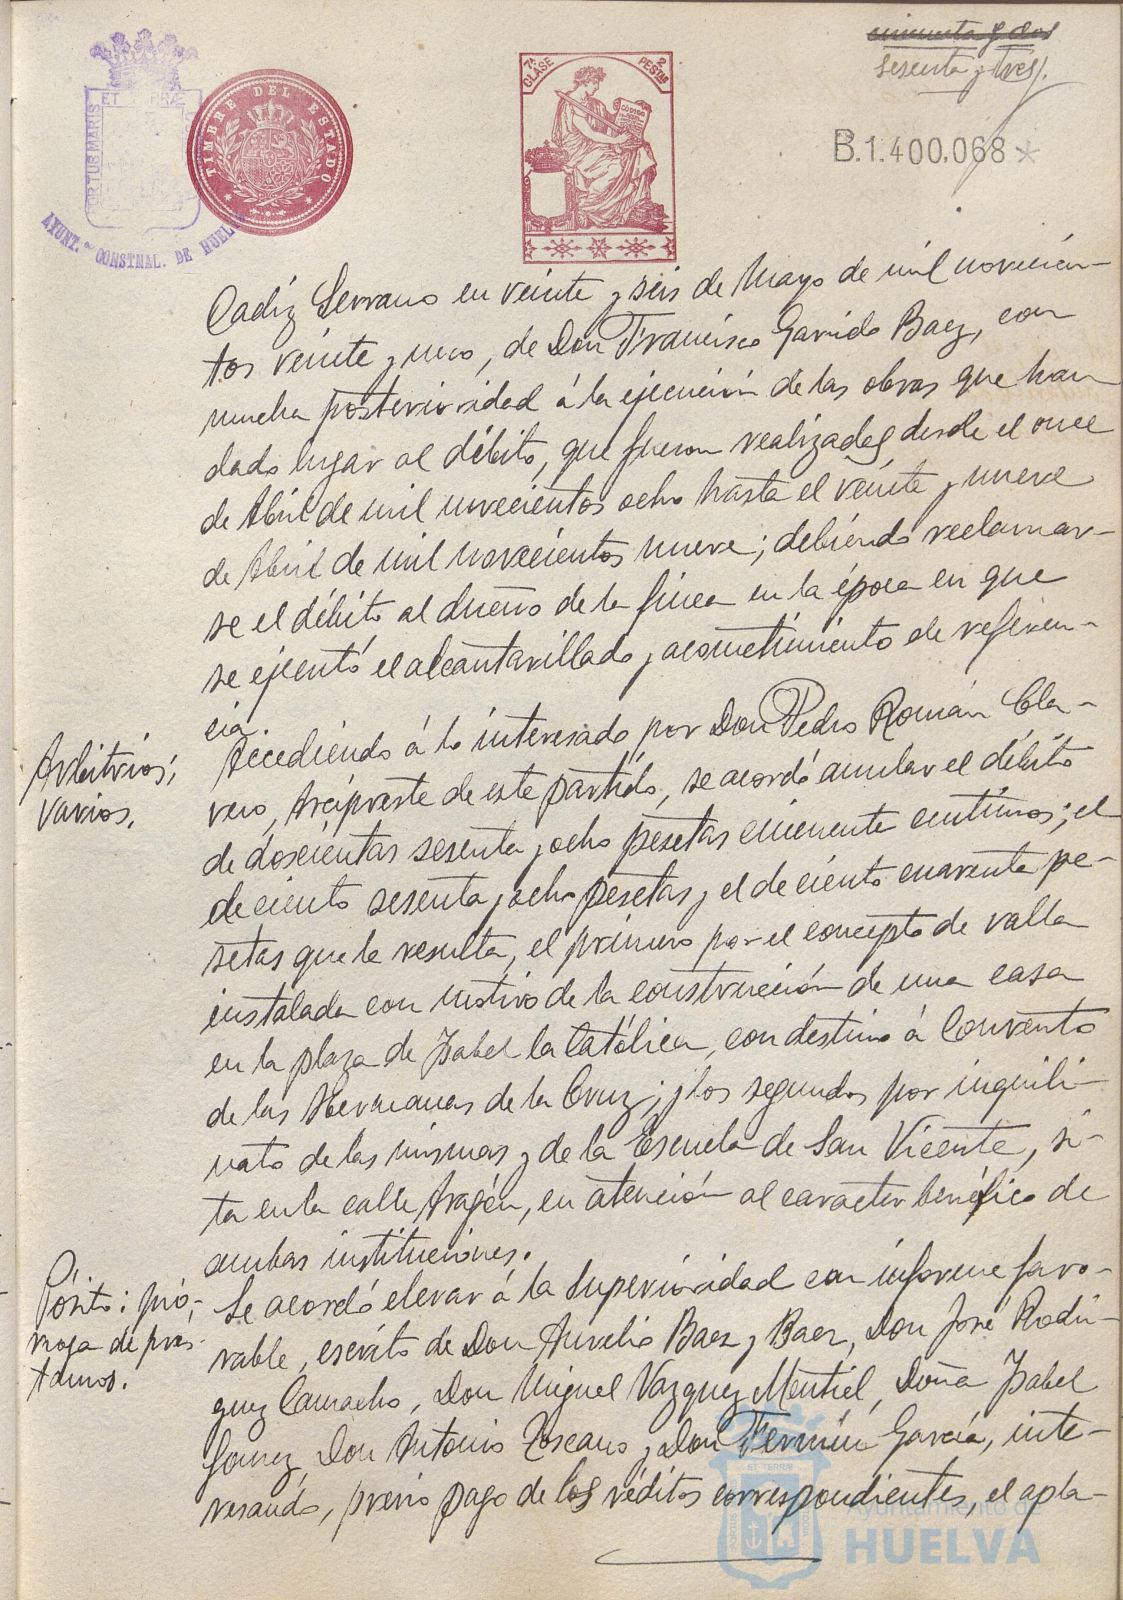 cincuenta y dos
sesenta y tres.
B.1.400.068*
7ª CLASE
2 PESTAS
CÓDIGO
TIMBRE DEL ESTADO
PORTUS MARIS ET TERRÆ
AYUNT.º CONSTNAL. DE HUELVA
Cadiz Serrano en veinte y seis de Mayo de mil novecien-
tos veinte y uno, de Don Francisco Garrido Baez, con
mucha posterioridad á la ejecución de las obras que han
dado lugar al débito, que fueron realizadas desde el once
de Abril de mil novecientos ocho hasta el veinte y nueve
de Abril de mil novecientos nueve; debiendo reclamar-
se el débito al dueño de la finca en la época en que
se ejecutó el alcantarillado y acometimiento de referen-
cia.
Arbitrios;
varios.
Accediendo á lo interesado por Don Pedro Román Cla-
vero, Arcipreste de este partido, se acordó anular el débito
de doscientas sesenta y ocho pesetas cincuenta centimos; el
de ciento sesenta y ocho pesetas y el de ciento cuarenta pe-
setas que le resulta, el primero por el concepto de valla
instalada con motivo de la construcción de una casa
en la plaza de Isabel la Católica, con destino á Convento
de las Hermanas de la Cruz; y los segundos por inquili-
nato de las mismas y de la Escuela de San Vicente, si-
ta en la calle Aragón, en atención al caracter benéfico de
ambas instituciones.
Pósito: pró-
rroga de prés-
tamos.
Se acordó elevar á la Superioridad con informe favo-
rable, escrito de Don Aurelio Baez y Baez, Don José Rodri-
guez Camacho, Don Miguel Vazquez Mentiel, Doña Isabel
Gomez, Don Antonio Toscano y Don Fermín García, inte-
resando, previo pago de los réditos correspondientes, el apla-
Ayuntamiento de
HUELVA